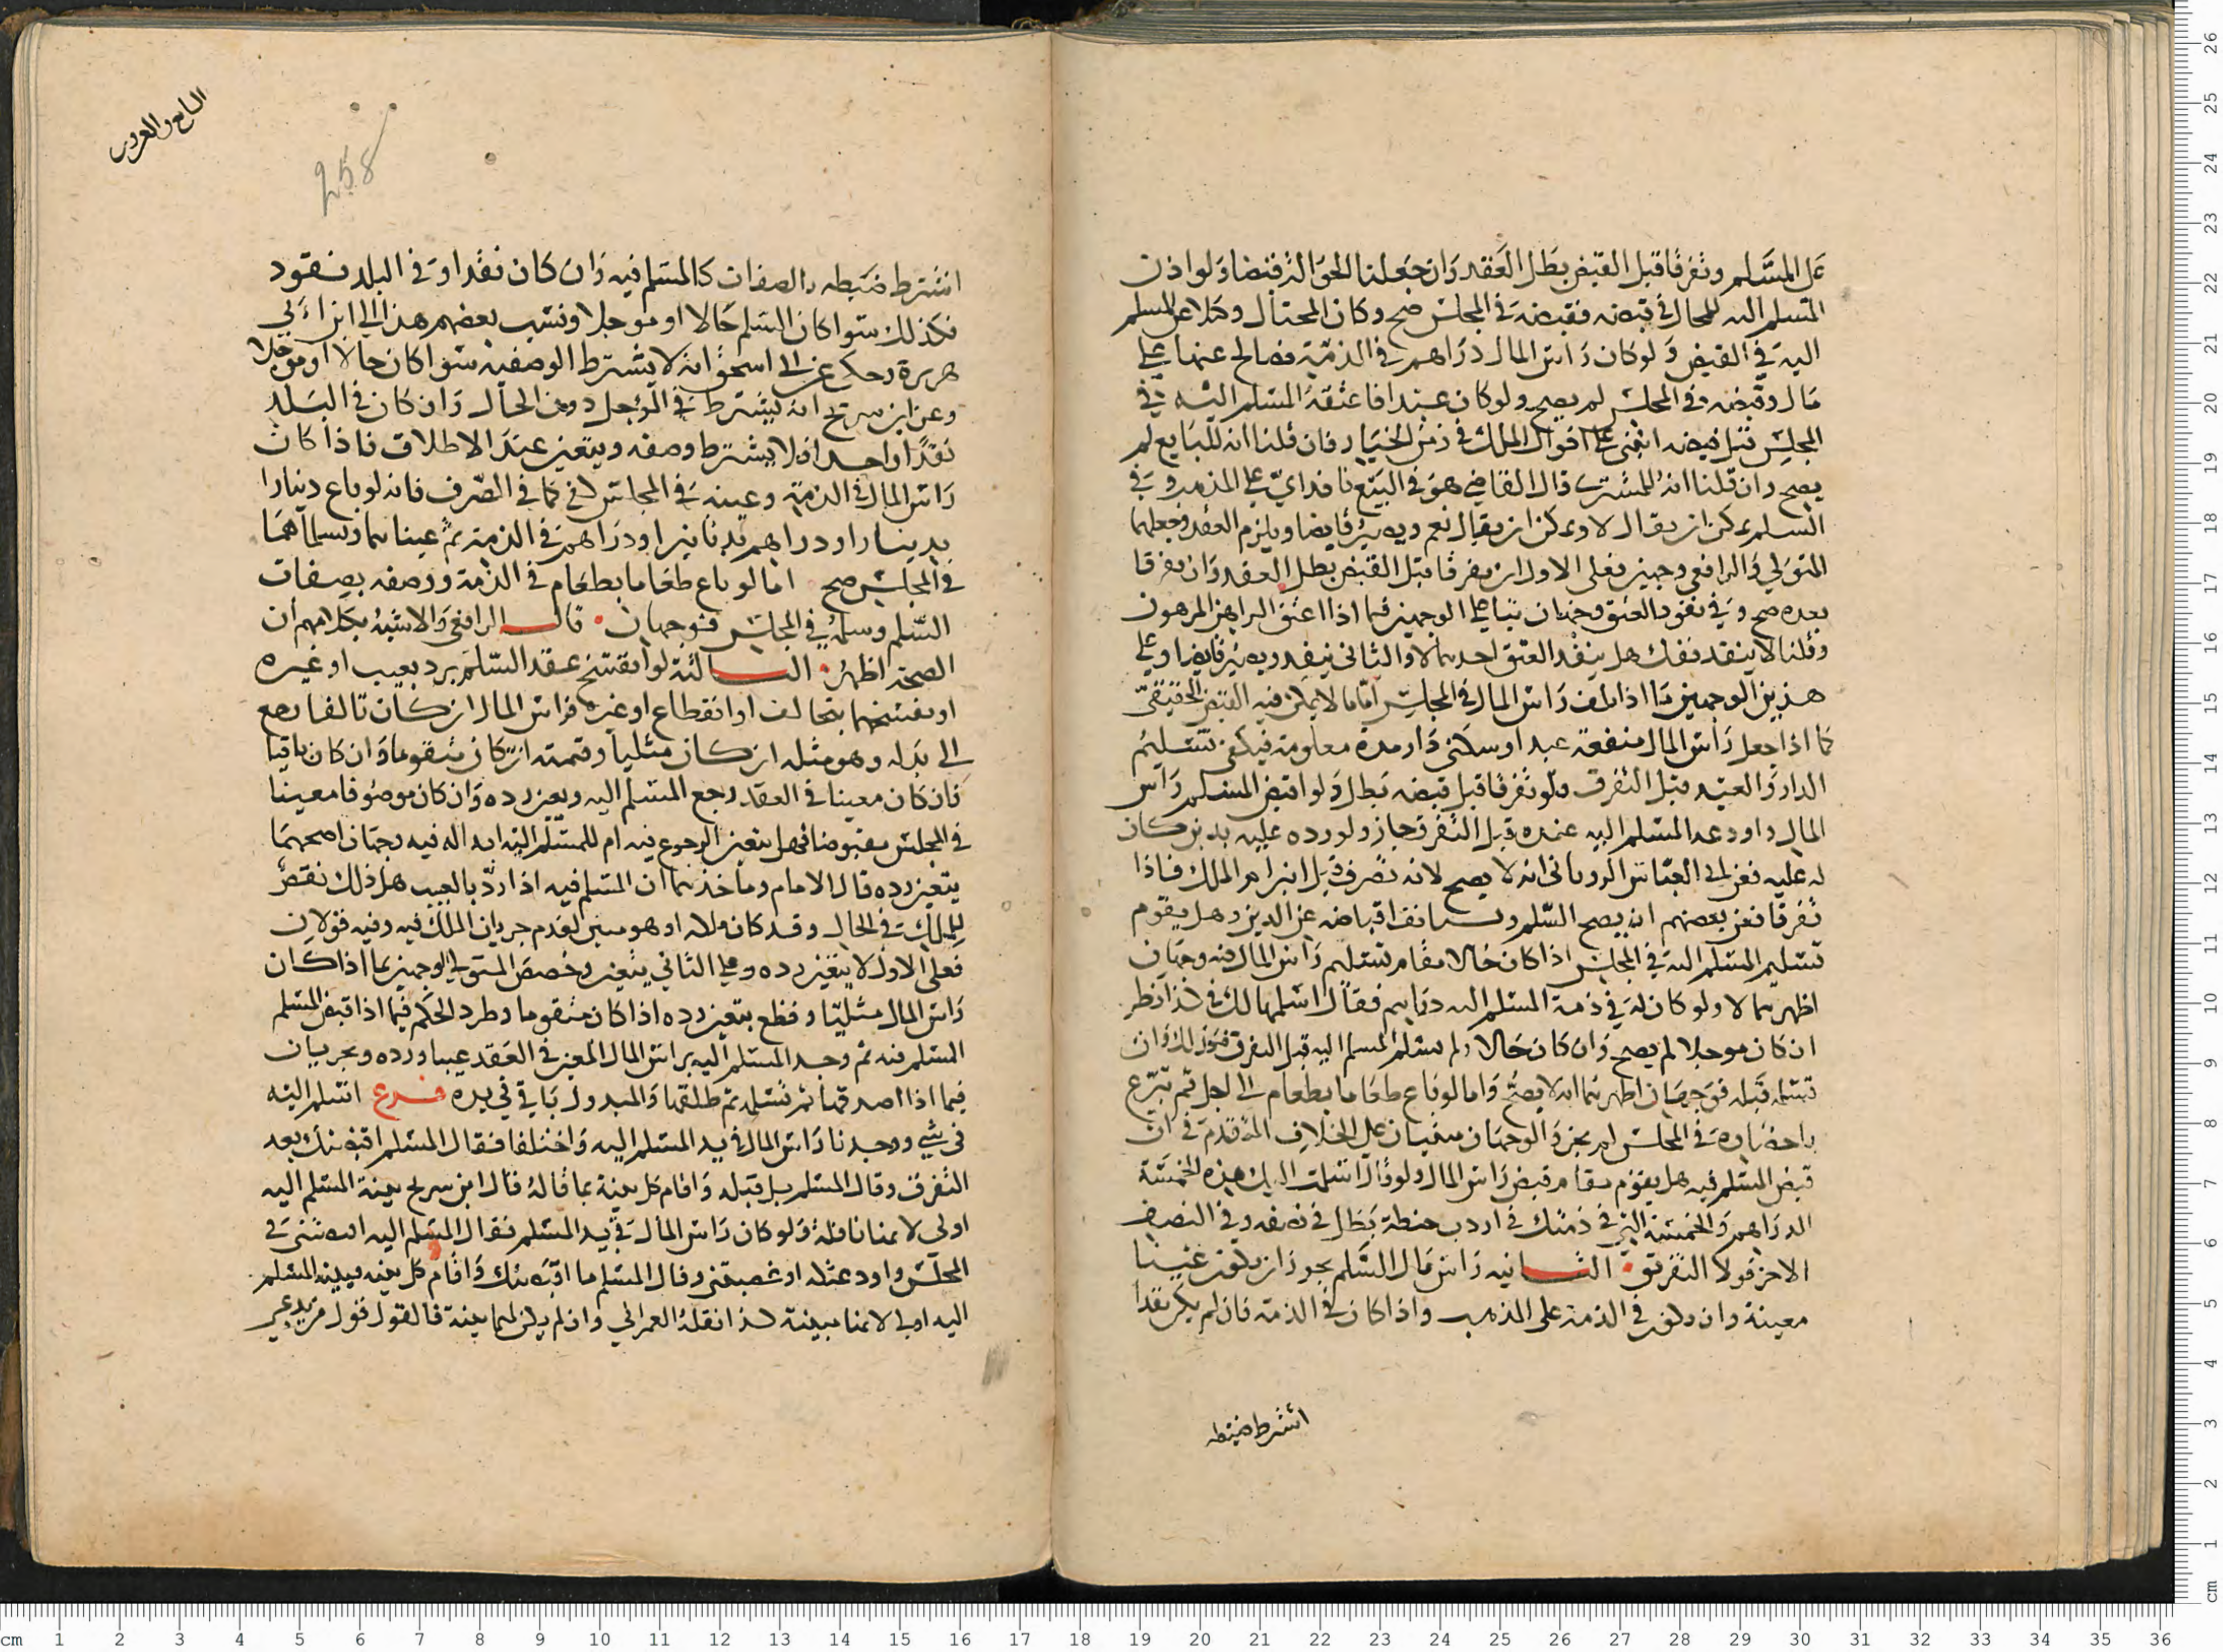 على المسلم وتفرقا قبل القبض بطل العقد وان جعلنا الحوالة قبضا ولو اذن
المسلم اليه للمحال في قبضه فقبضه في المجلس صح وكان المحتال وكيلا عن المسلم
اليه في القبض ولو كان راس المال دراهم في الذمة فصالح عنها على
مال وقبضه في المجلس لم يصح ولو كان عبدا فاعتقه المسلم اليه في
المجلس قبل قبضه انبنى على اقوال الملك في زمن الخيار فان قلنا انه للبايع لم
يصح وان قلنا انه للمشتري قال القاضي هو في البيع نافذ اي على المذهب وفي
السلم يمكن ان يقال لا ويمكن ان يقال نعم ويصير قابضا ويلزم العقد وجعلهما
المتولي والرافعي وجهين فعلى الاول ان تفرقا قبل القبض بطل العقد وان تفرقا
بعده صح وفي نفوذ العتق وجهان بناء على الوجهين فيما اذا اعتق الراهن المرهون
وقلنا لا ينفذ ففك هل ينفذ العتق احدهما لا والثاني ينفذ ويصير قابضا وعلى
هذين الوجهين ما اذا اتلف راس المال في المجلس اما ما لا يمكن فيه القبض الحقيقي
كما اذا جعل راس المال منفعة عبد او سكنى دار مدة معلومة فيكفي تسليم
الدار والعبد قبل التفرق فلو تفرقا قبل قبضه بطل ولو اقبض المسلم راس
المال واودعه المسلم اليه عنده قبل التفرق جاز ولو رده عليه بدين كان
له عليه فعن ابي العباس الروياني انه لا يصح لانه تصرف قبل انبرام الملك فاذا
تفرقا فعن بعضهم انه يصح السلم ويستانف اقباضه عن الدين وهل يقوم
تسليم المسلم اليه في المجلس اذا كان حالا مقام تسليم راس المال فيه وجهان
اظهرهما لا ولو كان له في ذمة المسلم اليه دراهم فقال اسلمها لك في كذا نظر
ان كان موجلا لم يصح وان كان حالا ولم يسلم المسلم اليه قبل التفرق فكذلك وان
تسلمه قبله فوجهان اظهرهما انه لا يصح واما لو باع طعاما بطعام الى اجل ثم تبرع
باحضاره في المجلس لم يجز والوجهان مبنيان على الخلاف المتقدم في ان
قبض المسلم فيه هل يقوم مقام قبض راس المال ولو قال اسلمت اليك هذه الخمسة
الدراهم والخمسة التي في ذمتك في اردب حنطة بطل في نصفه وفي النصف
الاخر قولا التفريق الثانيه راس مال السلم يجوز ان يكون عينا
معينة وان يكون في الذمة على المذهب واذا كان في الذمة فان لم يكن نقدا
اشترط ضبطه
البايع والعروس
258
اشترط ضبطه بالصفات كالمسلم فيه وان كان نقدا وفي البلد نقود
فكذلك سوا كان السلم حالا او موجلا ونسب بعضهم هذا الى ابن ابي
هريرة وحكى عن ابي اسحق انه لا يشترط الوصف فيه سوا كان حالا او موجلا
وعن ابن سريج انه يشترط في المؤجل دون الحال وان كان في البلد
نقدا واحدا فلا يشترط وصفه ويتعين عند الاطلاق فاذا كان
راس المال في الذمة وعينه في المجلس كفى كما في الصرف فانه لو باع دينارا
بدينار او دراهم بدنانير او دراهم في الذمة ثم عيناهما وتسلماهما
في المجلس صح اما لو باع طعاما بطعام في الذمة ووصفه بصفات
السلم وسلمه في المجلس فوجهان قال الرافعي والاشبه بكلامهم ان
الصحة اظهر الثالثة لو انفسخ عقد السلم برد بعيب او غيره
او بفسخهما بتحالف او انقطاع او غيره فراس المال ان كان تالفا رجع
الى بدله وهو مثله ان كان مثليا وقيمته ان كان متقوما وان كان باقيا
فان كان معينا في العقد رجع المسلم اليه وتعين رده وان كان موصوفا معينا
في المجلس مقبوضا فهل يتعين الرجوع فيه ام للمسلم اليه ابداله فيه وجهان اصحهما
يتعين رده قال الامام وماخذهما ان المسلم فيه اذا رد بالعيب هل ذلك نقض
للملك في الحال وقد كان ملكه او هو مبين لعدم جريان الملك فيه وفيه قولان
فعلى الاول لا يتعين رده وعلى الثاني يتعين وخصص المتولي الوجهين بما اذا كان
راس المال مثليا وقطع بتعين رده اذا كان متقوما وطرد الحكم فيما اذا قبض المسلم
المسلم فيه ثم وجد المسلم اليه براس المال المعين في العقد عيبا ورده ويجريان
فيما اذا اصدقها ثم تسلمته ثم طلقها والمبدول باق في يده فرع اسلم اليه
في شي ووجدنا راس المال في يد المسلم اليه واختلفا فقال المسلم اقبضتك بعد
التفرق وقال المسلم بل قبله واقام كل بينة بما قاله قال ابن سريج بينة المسلم اليه
اولى لانها ناقلة ولو كان راس المال في يد المسلم فقال المسلم اليه اقبضتني في
المجلس واودعتكه او غصبتني وقال المسلم ما اقبضتك واقام كل بينه فبينه المسلم
اليه اولى لانها مبينة كذا نقله العمراني وان لم يكن لهما بينة فالقول قول من يدعي